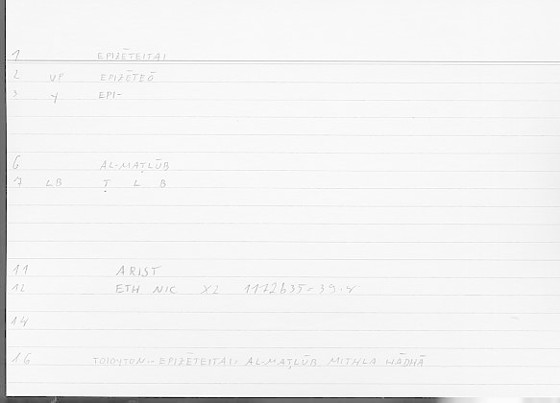 1 EPIZĒTEITAI
2 VP EPIZĒTEŌ
3 Y EPI-
6 AL-MAṬLŪB
7 LB Ṭ L B
11 ARIST
12 ETH NIC
14
16 TOIOYTON-- EPIZĒTEITAI: AL-MAṬLŪB MITHLA HĀDHĀ